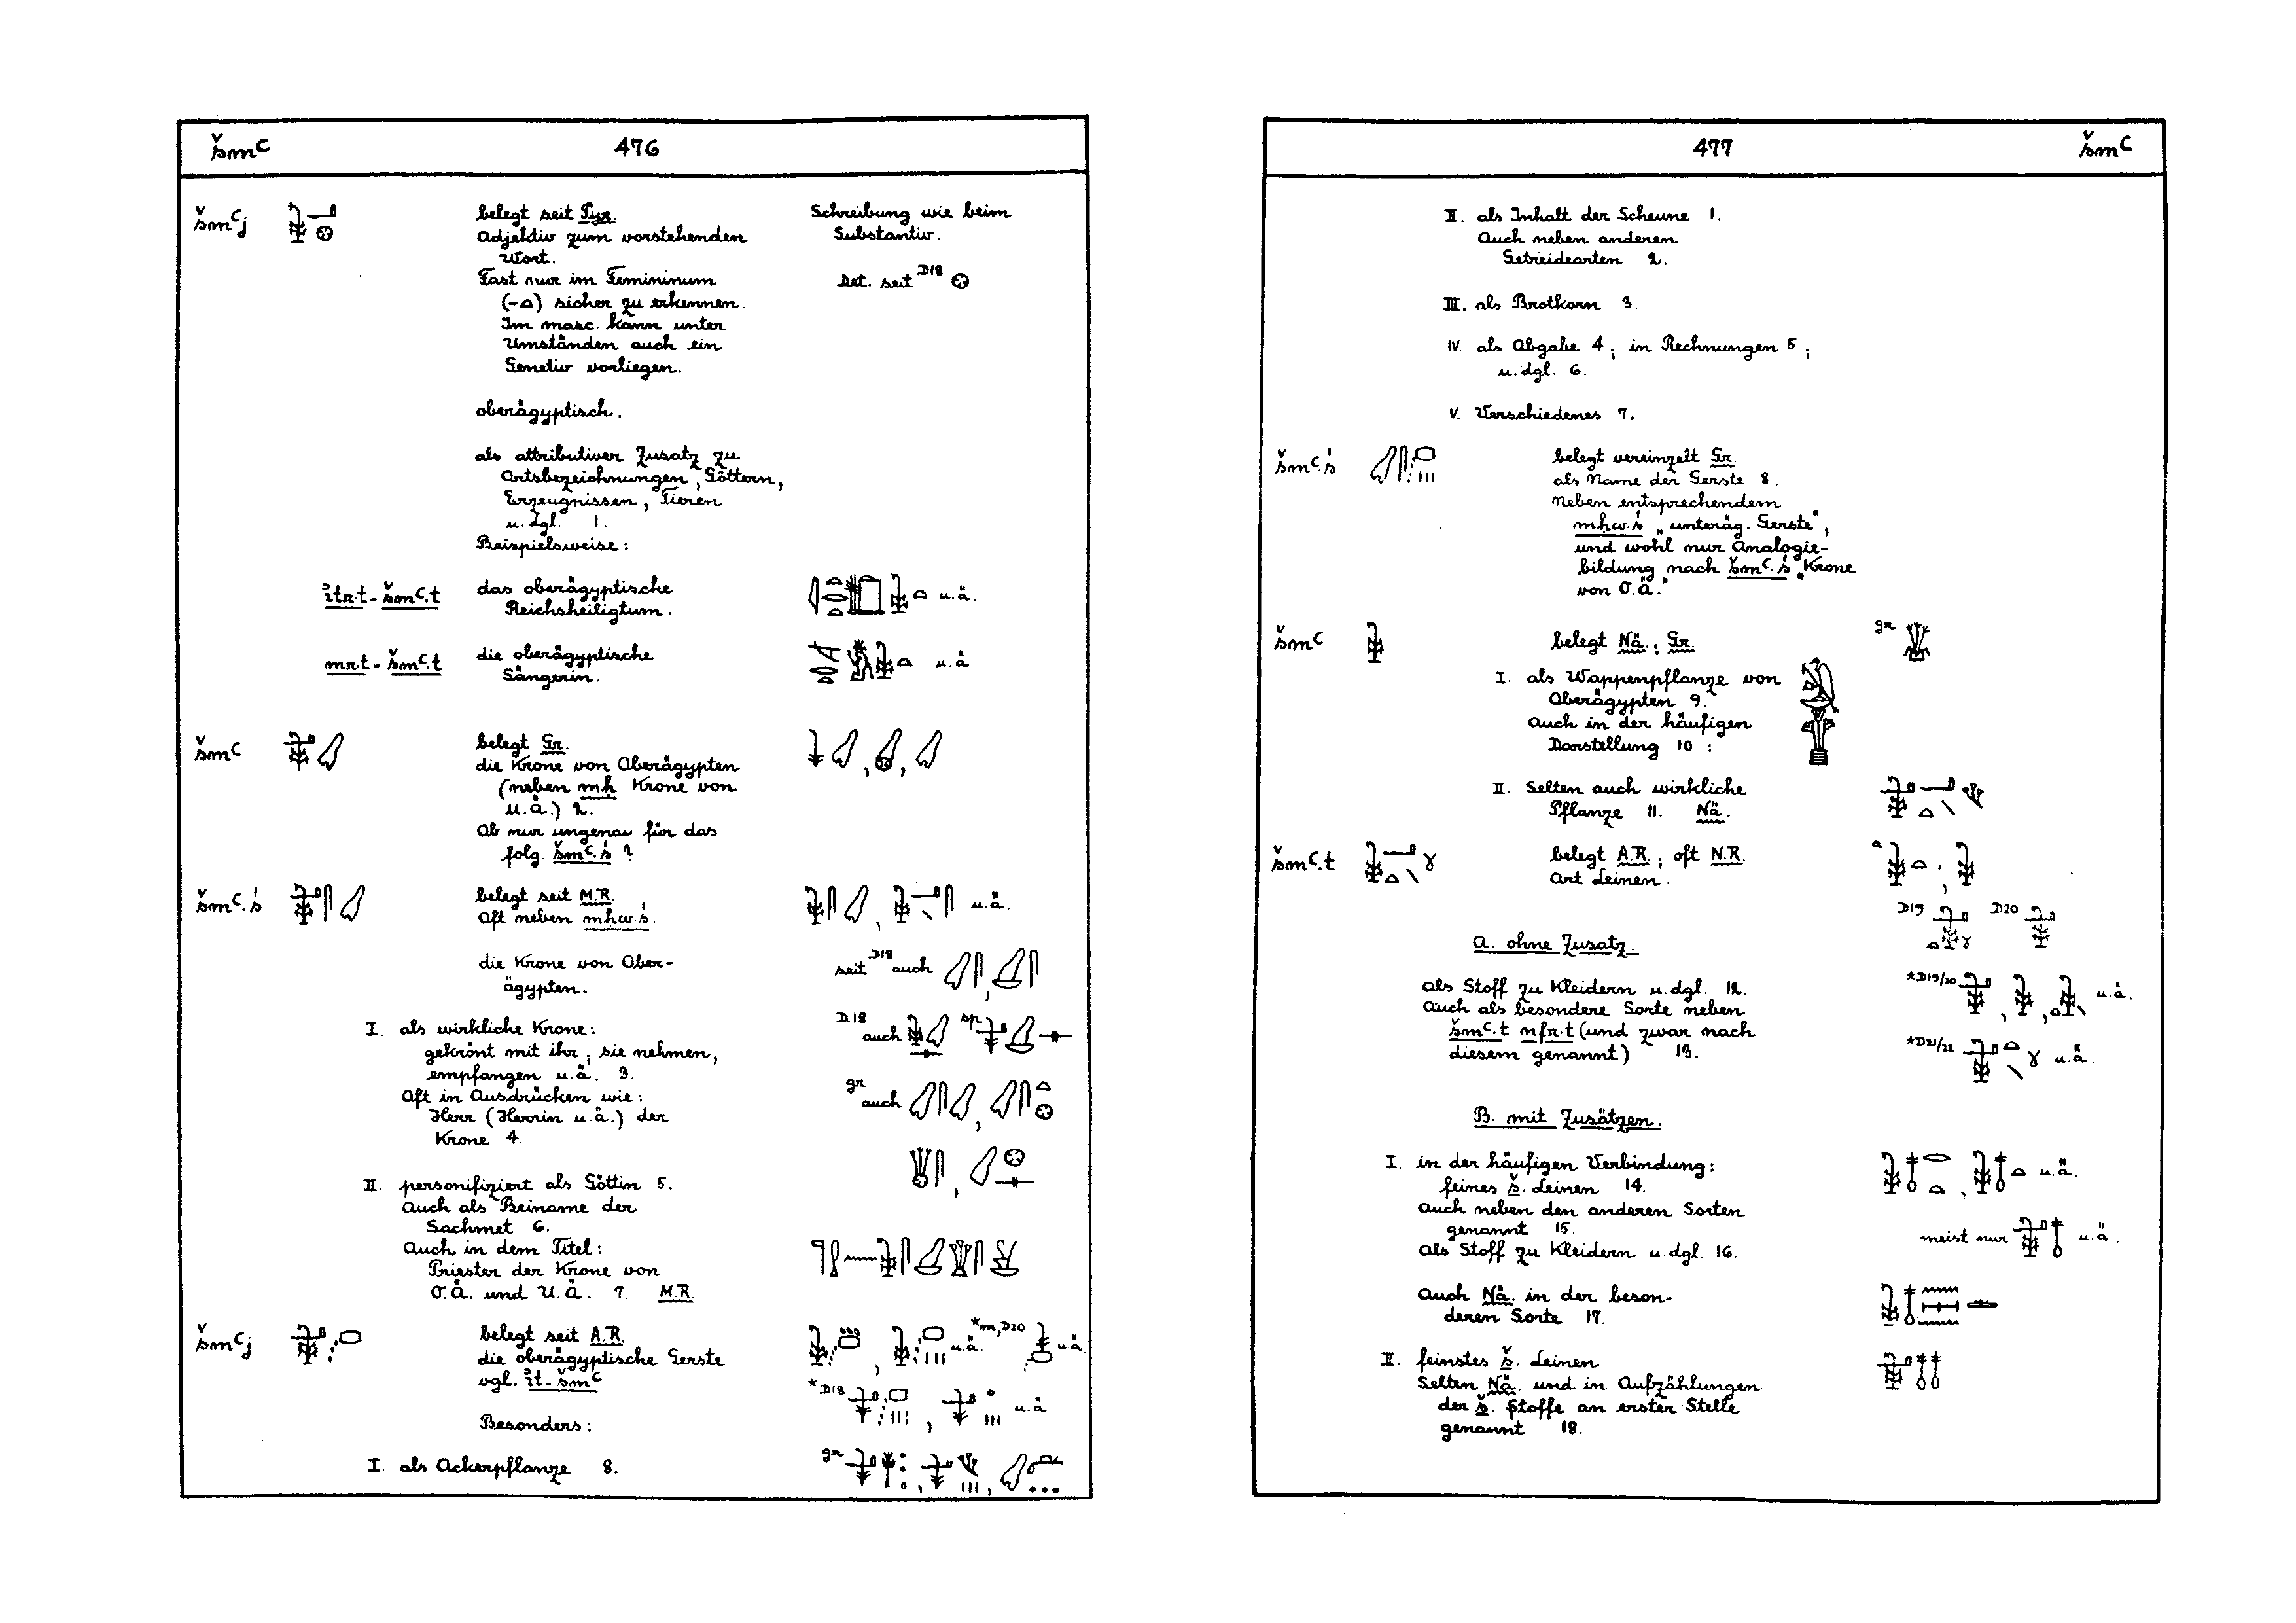 šmꜥ 476
šmꜥj
belegt seit Pyr. Schreibung wie beim
Adjektiv zum vorstehenden Substantiv.
Wort.
Fast nur im Femininum Det. seit D18
(-) sicher zu erkennen.
Im masc. kann unter
Umständen auch ein
Genetiv vorliegen.
oberägyptisch.
als attributiver Zusatz zu
Ortsbezeichnungen, Göttern,
Erzeugnissen, Tieren
u. dgl. 1.
Beispielsweise:
ꞽtr.t - šmꜥ.t das oberägyptische u.ä.
Reichsheiligtum.
mr.t - šmꜥ.t die oberägyptische u.ä
Sängerin.
šmꜥ belegt Gr.
die Krone von Oberägypten
(neben mḥ Krone von
U.Ä.) 2.
Ob nur ungenau für das
folg. šmꜥ.ś ?
šmꜥ.ś belegt seit M.R. u.ä.
Oft neben mḥw.ś.
die Krone von Ober- seit D18 auch
ägypten.
I. als wirkliche Krone: D.18 auch sp.
gekrönt mit ihr; sie nehmen,
empfangen u.ä. 3.
Oft in Ausdrücken wie: gr auch
Herr (Herrin u.ä.) der
Krone 4.
II. personifiziert als Göttin 5.
Auch als Beiname der
Sachmet 6.
Auch in dem Titel:
Priester der Krone von
O.Ä. und U.Ä. 7. M.R.
šmꜥj belegt seit A.R. u.ä. *m, D20 u.ä.
die oberägyptische Gerste
vgl. ꞽt-šmꜥ *D18 u.ä.
Besonders:
I. als Ackerpflanze 8. gr
477 šmꜥ
II. als Inhalt der Scheune 1.
Auch neben anderen
Getreidearten 2.
III. als Brotkorn 3.
IV. als Abgabe 4; in Rechnungen 5;
u. dgl. 6.
V. Verschiedenes 7.
šmꜥ.ś belegt vereinzelt Gr.
als Name der Gerste 8.
neben entsprechendem
mḥw.ś „unteräg. Gerste",
und wohl nur Analogie-
bildung nach šmꜥ.ś „Krone
von O.Ä."
šmꜥ belegt Nä; Gr. gr
I. als Wappenpflanze von
Oberägypten 9.
Auch in der häufigen
Darstellung 10:
II. Selten auch wirkliche
Pflanze 11. Nä.
šmꜥ.t belegt A.R.; oft N.R. a
Art Leinen.
D19 D20
A. ohne Zusatz.
als Stoff zu Kleidern u. dgl. 12. *D19/20 u.ä.
Auch als besondere Sorte neben
šmꜥ.t nfr.t (und zwar nach
diesem genannt) 13. *D21/22 u.ä.
B. mit Zusätzen.
I. in der häufigen Verbindung: u.ä.
feines š. Leinen 14.
Auch neben den anderen Sorten
genannt 15. meist nur u.ä.
als Stoff zu Kleidern u. dgl. 16.
Auch Nä. in der beson-
deren Sorte 17.
II. feinstes š. Leinen
Selten Nä. und in Aufzählungen
der š. Stoffe an erster Stelle
genannt 18.